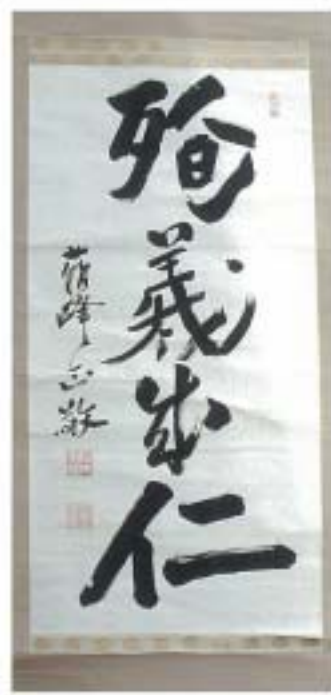 殉義成仁
蘇峰正敬